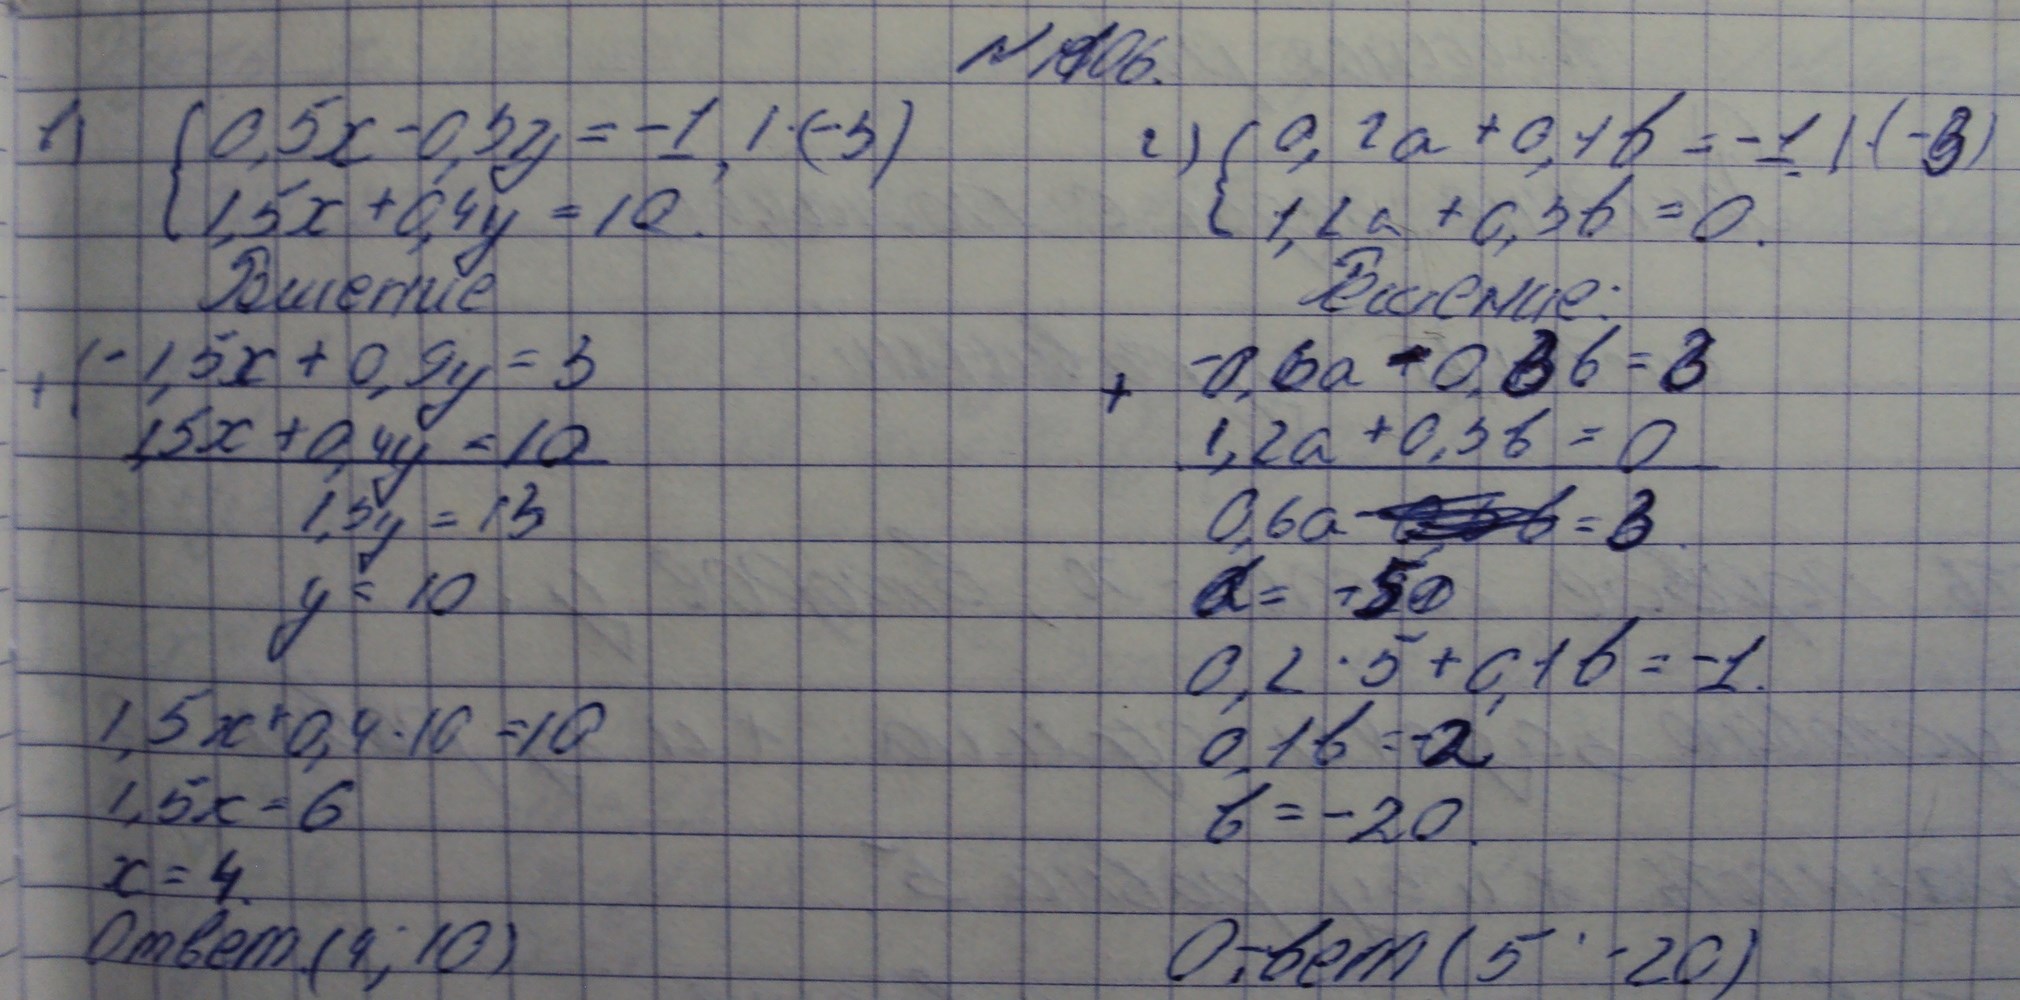 1) 0,5x - 0,3y = -1, | · (-3)
1,5x + 0,4y = 10.
Решение
+ { -1,5x + 0,9y = 3
1,5x + 0,4y = 10
1,3y = 13
y = 10
1,5x + 0,4 · 10 = 10
1,5x = 6
x = 4.
Ответ (4; 10)
2) 0,2a + 0,1b = -1. | · (-3)
1,2a + 0,3b = 0.
Решение:
+ -0,6a - 0,3b = 3
1,2a + 0,3b = 0
0,6a = 3.
0,2 · 5 + 0,1b = -1.
0,1b = -2
b = -20.
Ответ (5 ; -20)